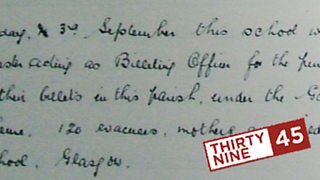 day, 3rd September this school w
acting as Billeting Officer for the
their billets in this parish, under the
120 evacuees, mothers
hool, Glasgow.
THIRTY
NINE
45